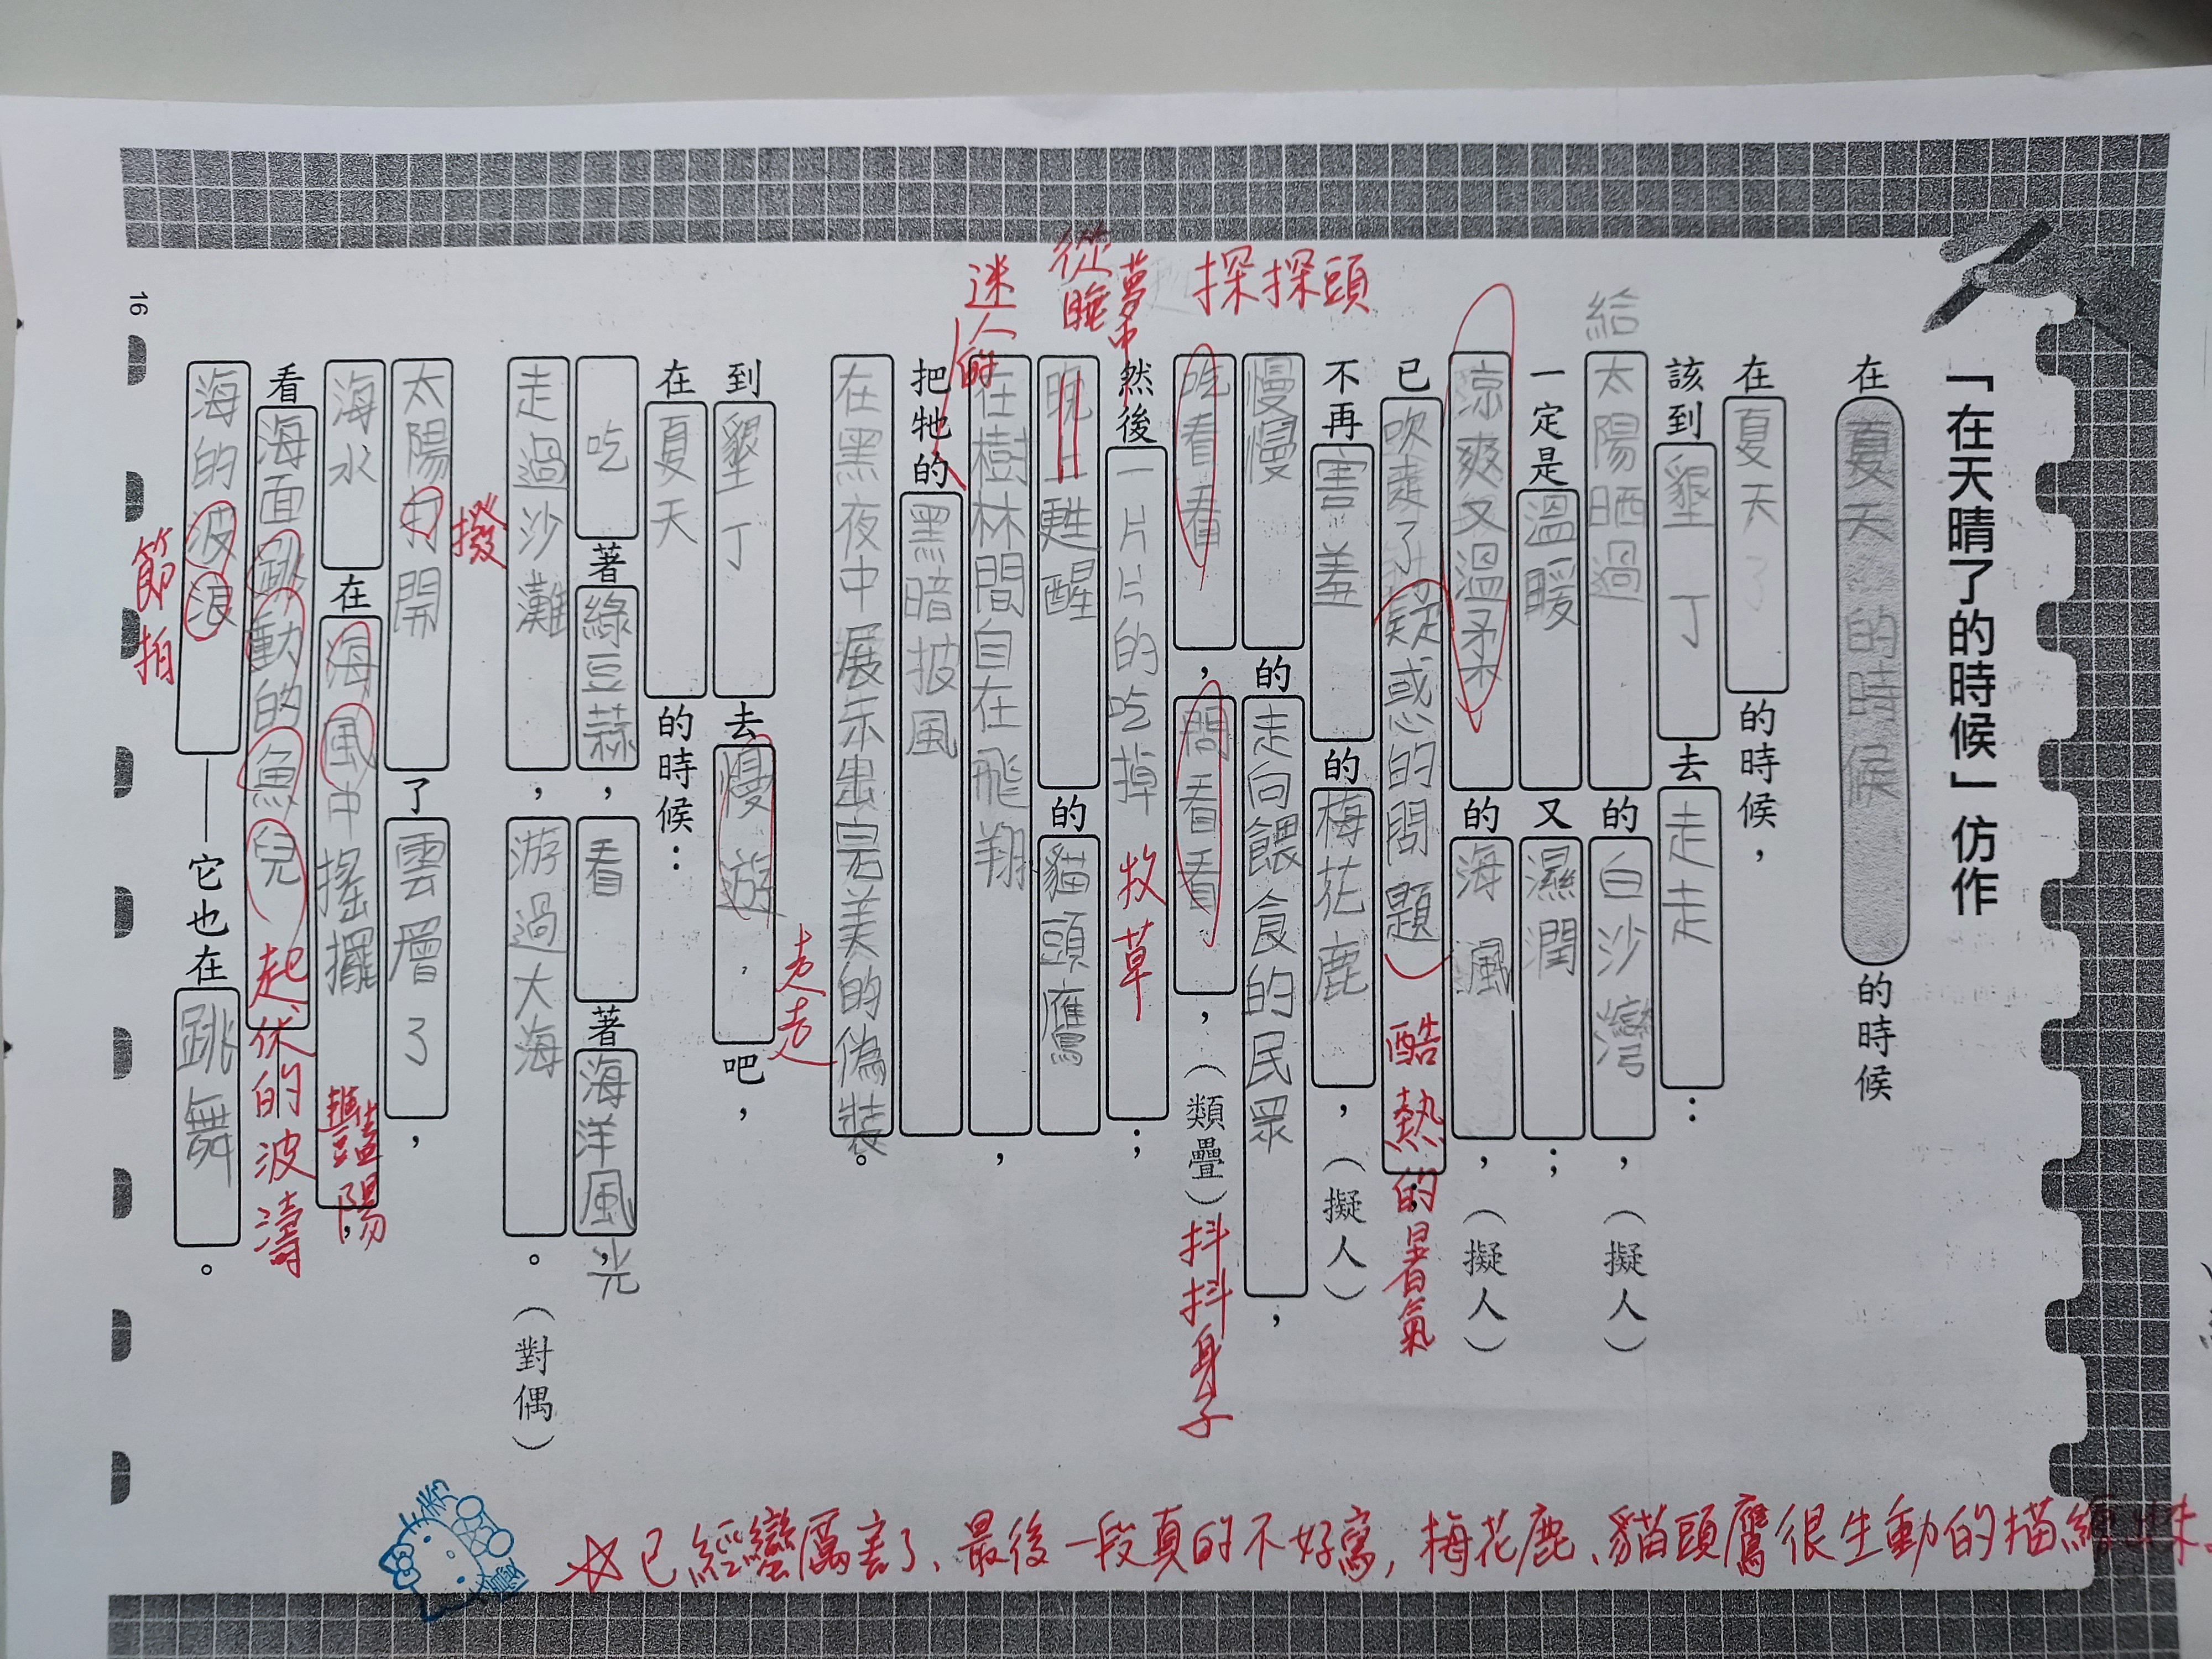 「在天晴了的時候」仿作
在夏天的時候的時候
在夏天了的時候，
該到墾丁去走走：
給太陽晒過的白沙灣，（擬人）
一定是溫暖又濕潤；
涼爽又溫柔的海風，（擬人）
已吹走了疑惑的問題；酷熱的暑氣
不再害羞的梅花鹿，（擬人）
慢慢的走向餵食的民眾，
探探頭
吃看看，問看看，（類疊）抖抖身子
然後一片片的吃掉牧草；
從睡夢中
晚上甦醒的貓頭鷹
在樹林間自在飛翔，
迷人的
把牠的黑暗披風
在黑夜中展示出完美的偽裝。
到墾丁去慢遊，吧，走走
在夏天的時候：
吃著綠豆蒜，看著海洋風光，
走過沙灘，游過大海。（對偶）
撥
太陽打開了雲層了，
海水在海風中搖擺，豔陽
看海面跳動的魚兒起伏的波濤
海的波浪——它也在跳舞。
節拍
☆已經蠻厲害了、最後一段真的不好寫，梅花鹿、貓頭鷹很生動的描繪出來
16